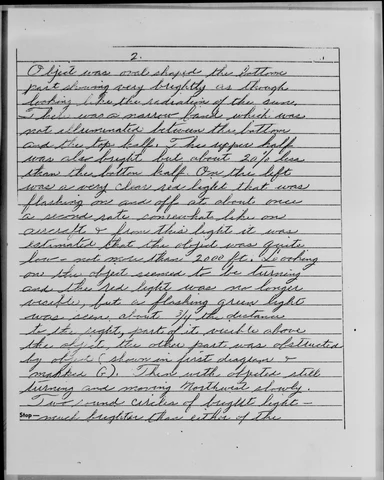 2.
Object was oval shaped the bottom
part shining very brightly as though
looking like the radiation of the sun.
There was a narrow band which was
not illuminated between the bottom
and the top half. The upper half
was also bright but about 20% less
than the bottom half. On the left
was a very clear red light that was
flashing on and off at about once
a second rate somewhat like on
aircraft & from this light it was
estimated that the object was quite
low - not more than 2000 ft. Looking
on the object seemed to be turning
and the red light was no longer
visible, but a flashing green light
was seen about 3/4 the distance
to the right, part of it visible above
the object, the other part was obstructed
by object (shown in first diagram &
marked G). Then with objected still
turning and moving Northwest slowly.
Two round circles of bright light -
Stop— much brighter than either of the